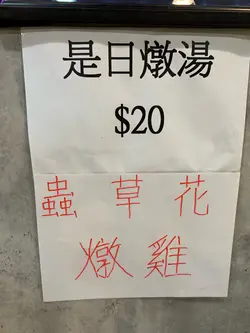 是日燉湯
$20
蟲草花
燉雞